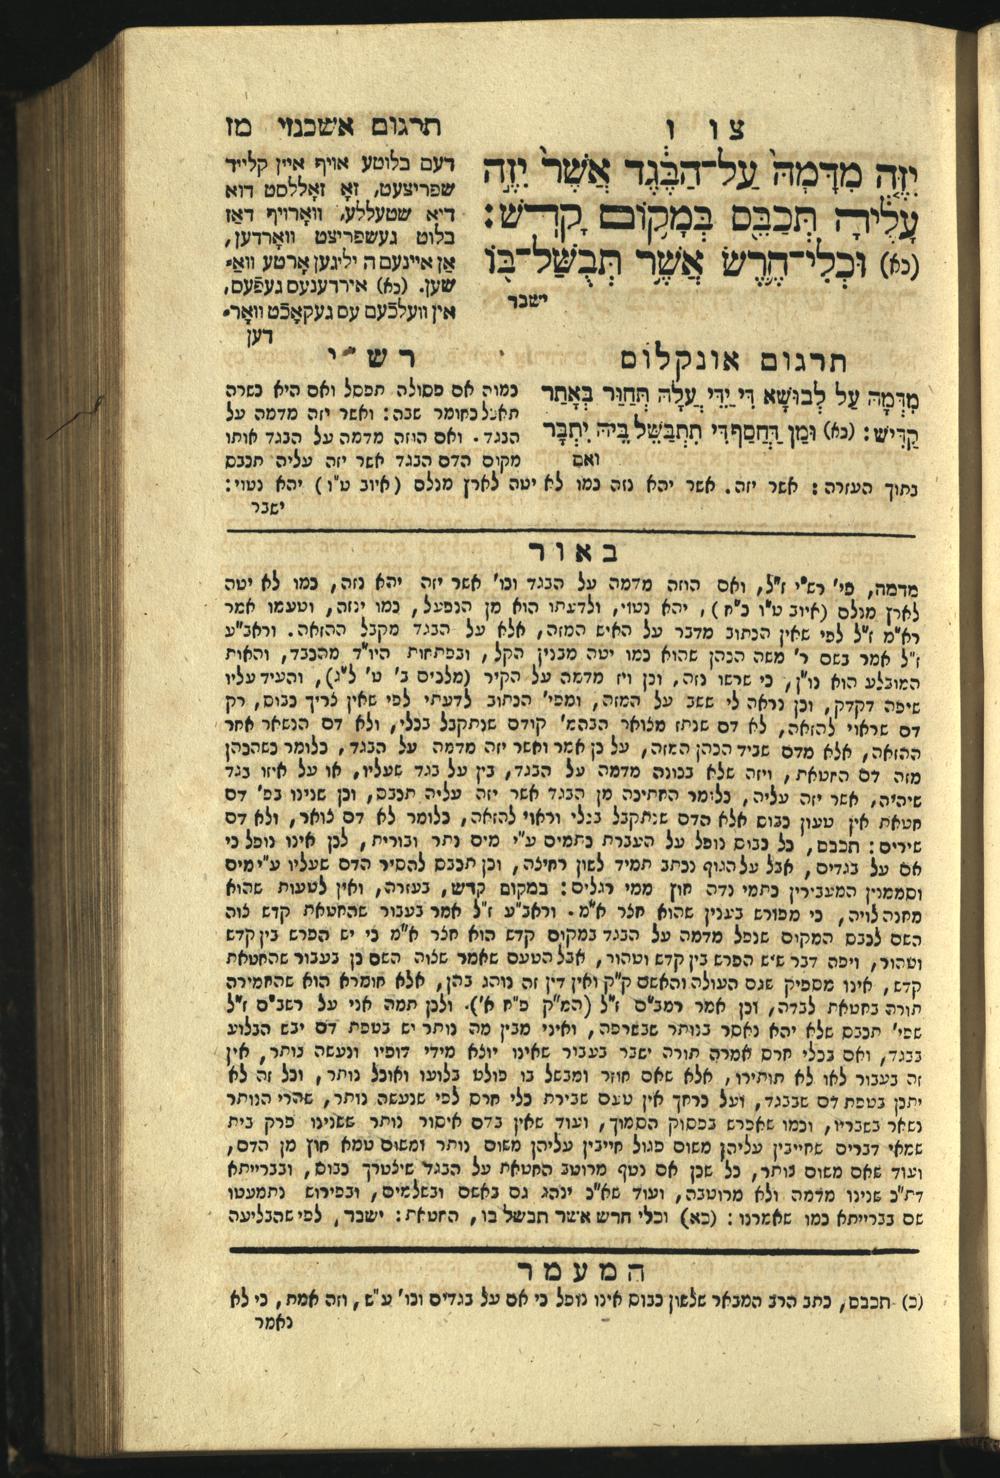 צו ו
תרגום אשכנזי מז
יִזֶּה מִדָּמָהּ עַל־הַבֶּגֶד אֲשֶׁר יִזֶּה
עָלֶיהָ תְּכַבֵּס בְּמָקוֹם קָדֹשׁ׃
(כא) וּכְלִי־חֶרֶשׂ אֲשֶׁר תְּבֻשַּׁל־בּוֹ
ישבר
דעם בלוטע אויף איין קלייד
שפריצעט, זאָ זאָללסט דוא
דיא שטעללע, וואָרויף דאַז
בלוט געשפריצט וואָרדען,
אן איינעם היליגען אָרטע וואַ־
שען. (כא) אירדענעס געפֿעס,
אין וועלכֿעם עס געקאָכֿט וואָר־
דען
תרגום אונקלוס
מִדְּמָהּ עַל לְבוּשָׁא דִּי יַדֵּי עֲלַהּ תְּחַוַּר בְּאָתַר
קַדִּישׁ: (כא) וּמַן דַּחֲסַף דִּי תִתְבַּשֵּׁל בֵּיהּ יִתְּבָר
ואם
רש"י
כמוה אם פסולה תפסל ואם היא כשרה
תאכל כחומר שבה: ואשר יזה מדמה על
הבגד. ואם הוזה מדמה על הבגד אותו
מקום הדם הבגד אשר יזה עליה תכבס
בתוך העזרה: אשר יזה. אשר יהא נזה כמו לא יטה לארץ מנלם (איוב ט"ו) יהא נטוי:
ישבר
באור
מדמה, פי' רש"י ז"ל, ואם הוזה מדמה על הבגד וכו' אשר יזה יהא נזה, כמו לא יטה
לארץ מנלם (איוב ט"ו כ"ח), יהא נטוי, ולדעתו הוא מן הנפעל, כמו ינזה, וטעמו אמר
רא"מ ז"ל לפי שאין הכתוב מדבר על האיש המזה, אלא על הבגד מקבל ההזאה. וראב"ע
ז"ל אמר בשם ר' משה הכהן שהוא כמו יטה מבנין הקל, ובפתחות היו"ד מהכבד, והאות
המובלע הוא נו"ן, כי שרשו נזה, וכן ויז מדמה על הקיר (מלכים ב' ט' ל"ג), והעיד עליו
שיפה דקדק, וכן נראה לי ששב על המזה, ומפי' הכתוב לדעתי לפי שאין צריך כבוס, רק
דם שראוי להזאה, לא דם שנתז מצואר הבהמ' קודם שנתקבל בכלי, ולא דם הנשאר אחר
ההזאה, אלא מדם שביד הכהן המזה, על כן אמר ואשר יזה מדמה על הבגד, כלומר כשהכהן
מזה דם החטאת, ויזה שלא בכונה מדמה על הבגד, בין על בגד שעליו, או על איזו בגד
שיהיה, אשר יזה עליה, כלומר החתיכה מן הבגד אשר יזה עליה תכבס, וכן שנינו בפ' דם
חטאת אין טעון כבוס אלא הדם שנתקבל בכלי וראוי להזאה, כלומר לא דם צואר, ולא דם
שירים: תכבס, כל כבוס נופל על העברת כתמים ע"י מים נתר ובורית, לכן אינו נופל כי
אם על בגדים, אבל על הגוף נכתב תמיד לשון רחיצה, וכן תכבס להסיר הדם שעליו ע"י מים
וסממנין המעבירין כתמי נדה חוץ ממי רגלים: במקום קדש, בעזרה, ואין לטעות שהוא
מחנה לויה, כי מפורש בענין שהוא חצר א"מ. וראב"ע ז"ל אמר בעבור שהחטאת קדש צוה
השם לכבס המקום שנפל מדמה על הבגד במקום קדש הוא חצר א"מ כי יש הפרש בין קדש
וטהור, ויפה דבר שיש הפרש בין קדש וטהור, אבל הטעם שאמר שצוה השם כן בעבור שהחטאת
קדש, אינו מספיק שגם העולה והאשם ק"ק ואין דין זה נוהג בהן, אלא חומרא הוא שהחמירה
תורה בחטאת לבדה, וכן אמר רמב"ם ז"ל (המ"ק פ"ח א'). ולכן תמה אני על רשב"ם ז"ל
שפי' תכבס שלא יהא נאסר בנותר שבשרפה, ואיני מבין מה נותר יש בטפת דם יבש הבלוע
בבגד, ואם בכלי חרס אמרה תורה ישבר בעבור שאינו יוצא מידי דופיו ונעשה נותר, אין
זה בעבור לאו לא תותירו, אלא שאם חוזר ומבשל בו פולט בלועו ואוכל נותר, וכל זה לא
יתכן בטפת דם שבבגד, ועל כרחך אין טעם שבירת כלי חרס לפי שנעשה נותר, שהרי הנותר
נשאר בשבריו, וכמו שאפרש בפסוק הסמוך, ועוד שאין בדם איסור נותר ששנינו פרק בית
שמאי דברים שחייבין עליהן משום פגול חייבין עליהן משום נותר ומשום טמא חוץ מן הדם,
ועוד שאם משום נותר, כל שכן אם נטף מרוטב החטאת על הבגד שיצטרך כבוס, ובברייתא
דת"כ שנינו מדמה ולא מרוטבה, ועוד שא"כ ינהג גם באשם ובשלמים, ובפירוש נתמעטו
שם בברייתא כמו שאמרנו: (כא) וכלי חרש אשר תבשל בו, החטאת: ישבר, לפי שהבליעה
המעמר
(כ) תכבס, כתב הרב המבאר שלשון כבוס אינו נופל כי אם על בגדים וכו' ע"ש, וזה אמת, כי לא
נאמר